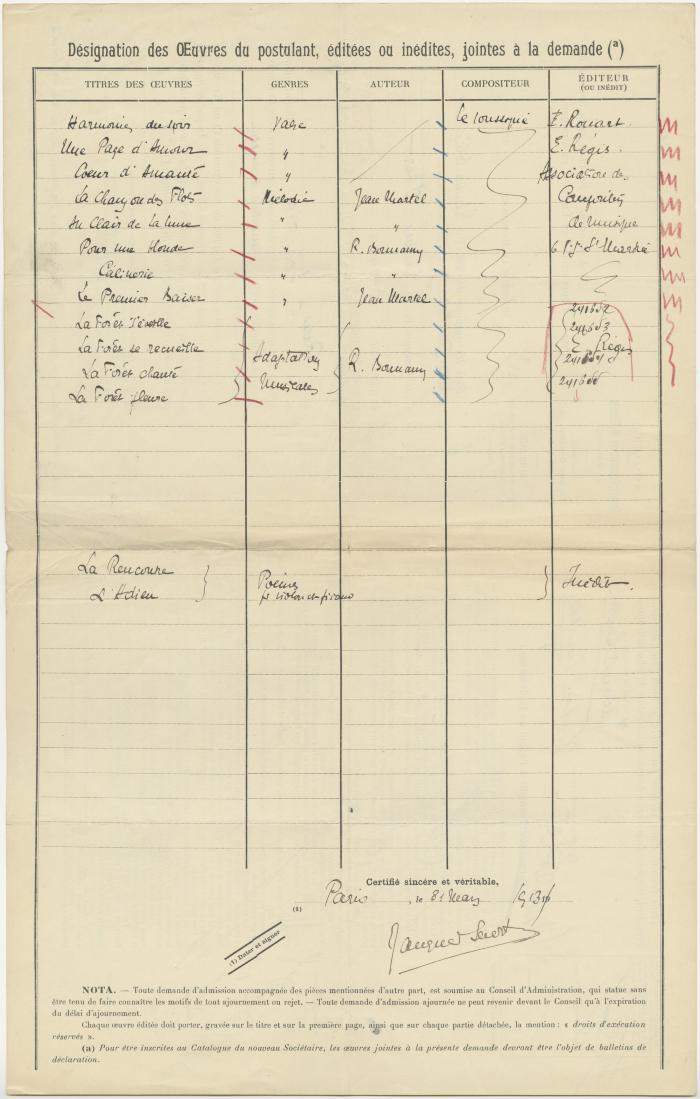 Désignation des Œuvres du postulant, éditées ou inédites, jointes à la demande (a)
TITRES DES ŒUVRES GENRES AUTEUR COMPOSITEUR ÉDITEUR
(OU INÉDIT)
Harmonies du soir Valse E. Rouart.
Une Page d'Amour " E. Régis.
Coeur d'Amante " Association des
La Chanson des Flots Mélodie Jean Martel Compositeurs
Au Clair de la lune " " de musique
Pour une blonde " R. Bonnamy 6 St Martin
Câlinerie " "
Le Premier Baiser " Jean Martel
La Forêt s'éveille
La Forêt se recueille Adaptations E. Régis
La Forêt chante Musicales R. Bonnamy
La Forêt pleure
La Rencontre Poèmes Inédit.
L'Adieu pr violon et piano
Certifié sincère et véritable,
(1) Paris, le 31 Mars 1913
(1) Dater et signer
NOTA. — Toute demande d'admission accompagnée des pièces mentionnées d'autre part, est soumise au Conseil d'Administration, qui statue sans
être tenu de faire connaître les motifs de tout ajournement ou rejet. — Toute demande d'admission ajournée ne peut revenir devant le Conseil qu'à l'expiration
du délai d'ajournement.
Chaque œuvre éditée doit porter, gravée sur le titre et sur la première page, ainsi que sur chaque partie détachée, la mention : « droits d'exécution
réservés ».
(a) Pour être inscrites au Catalogue du nouveau Sociétaire, les œuvres jointes à la présente demande devront être l'objet de bulletins de
déclaration.